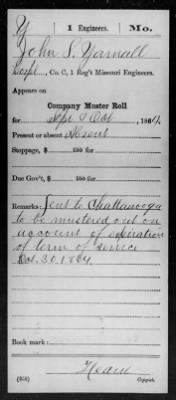 Y | 1 Engineers. | Mo.
John S. Yarnall
Corpl, Co. C, 1 Reg't Missouri Engineers.
Appears on
Company Muster Roll
for Sep & Oct, 1864.
Present or absent Absent
Stoppage, $ 100 for
Due Gov't, $ 100 for
Remarks: Sent to Chattanooga
to be mustered out on
account of expiration
of term of service
Oct. 30. 1864.
Book mark:
(858)
Copyist.